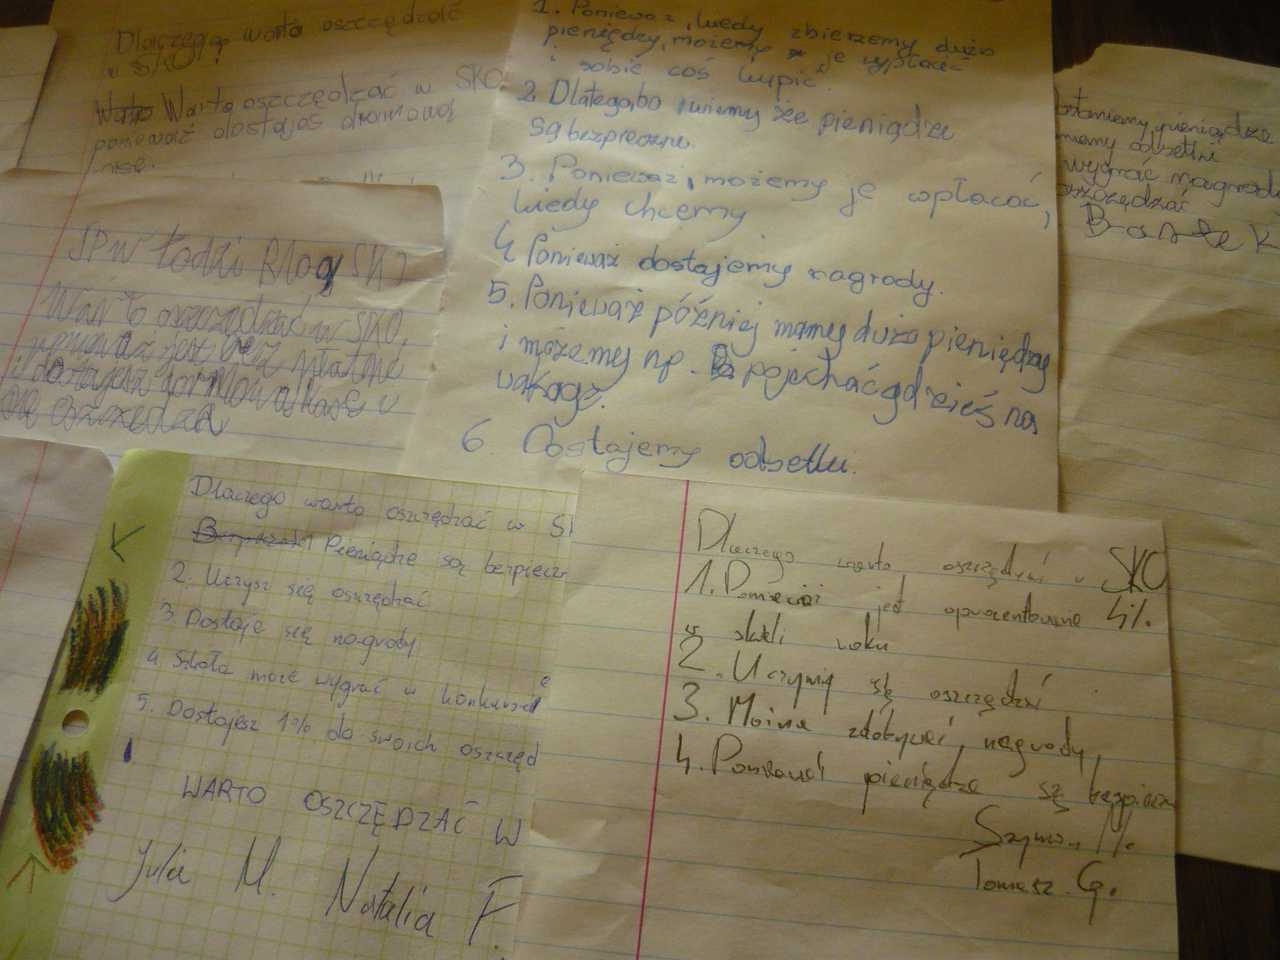 Dlaczego warto oszczędzać
w SKO?
Warto oszczędzać w SKO
ponieważ dostajesz
SP w Łodzi Blog SKO
Warto oszczędzać w SKO,
i dostajesz
1. Ponieważ, kiedy zbierzemy dużo
pieniędzy, możemy je wypłacić
i sobie coś kupić.
2. Dlatego, bo wiemy że pieniądze
są bezpieczne.
3. Ponieważ, możemy je wpłacać,
kiedy chcemy
4. Ponieważ dostajemy nagrody.
5. Ponieważ później mamy dużo pieniędzy
i możemy np. pojechać gdzieś na
wakacje.
6. Dostajemy odsetki.
dostaniemy pieniądze
mamy odsetki
wygrać nagrody
oszczędzać
Bartek
Dlaczego warto oszczędzać w S
1 Pieniądze są bezpiecz
2. Uczysz się oszczędzać
3. Dostaje się nagrody
4. Szkoła może wygrać w konkursie
5. Dostajesz 1% do swoich oszczęd
WARTO OSZCZĘDZAĆ W
Julia M. Natalia F.
Dlaczego warto oszczędzać w SKO
1. Ponieważ jest oprocentowane 4%.
w skali roku
2. Uczymy się oszczędzać
3. Można zdobywać nagrody,
4. Ponieważ pieniądze są bezpiecz
Szymon M.
Tomasz G.